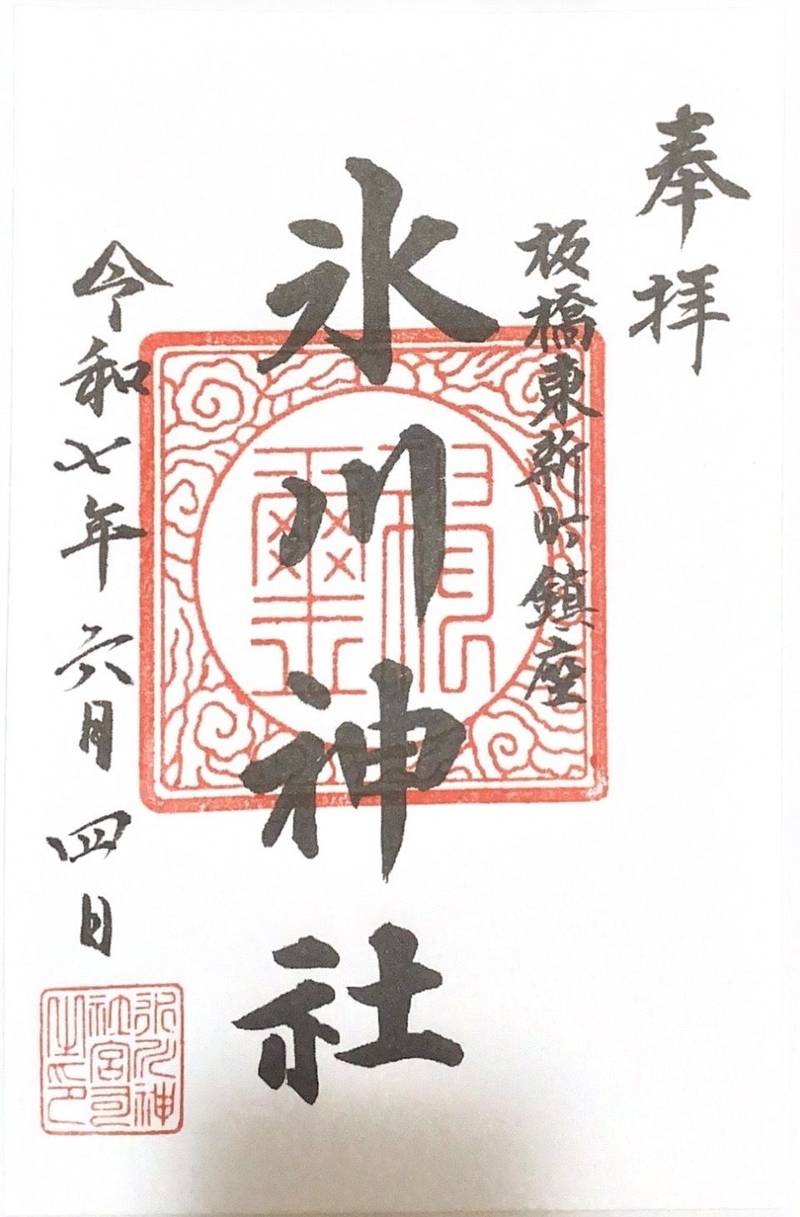 奉拝
板橋東新町鎮座
氷川神社
令和七年六月四日
氷川神
社宮司
之印